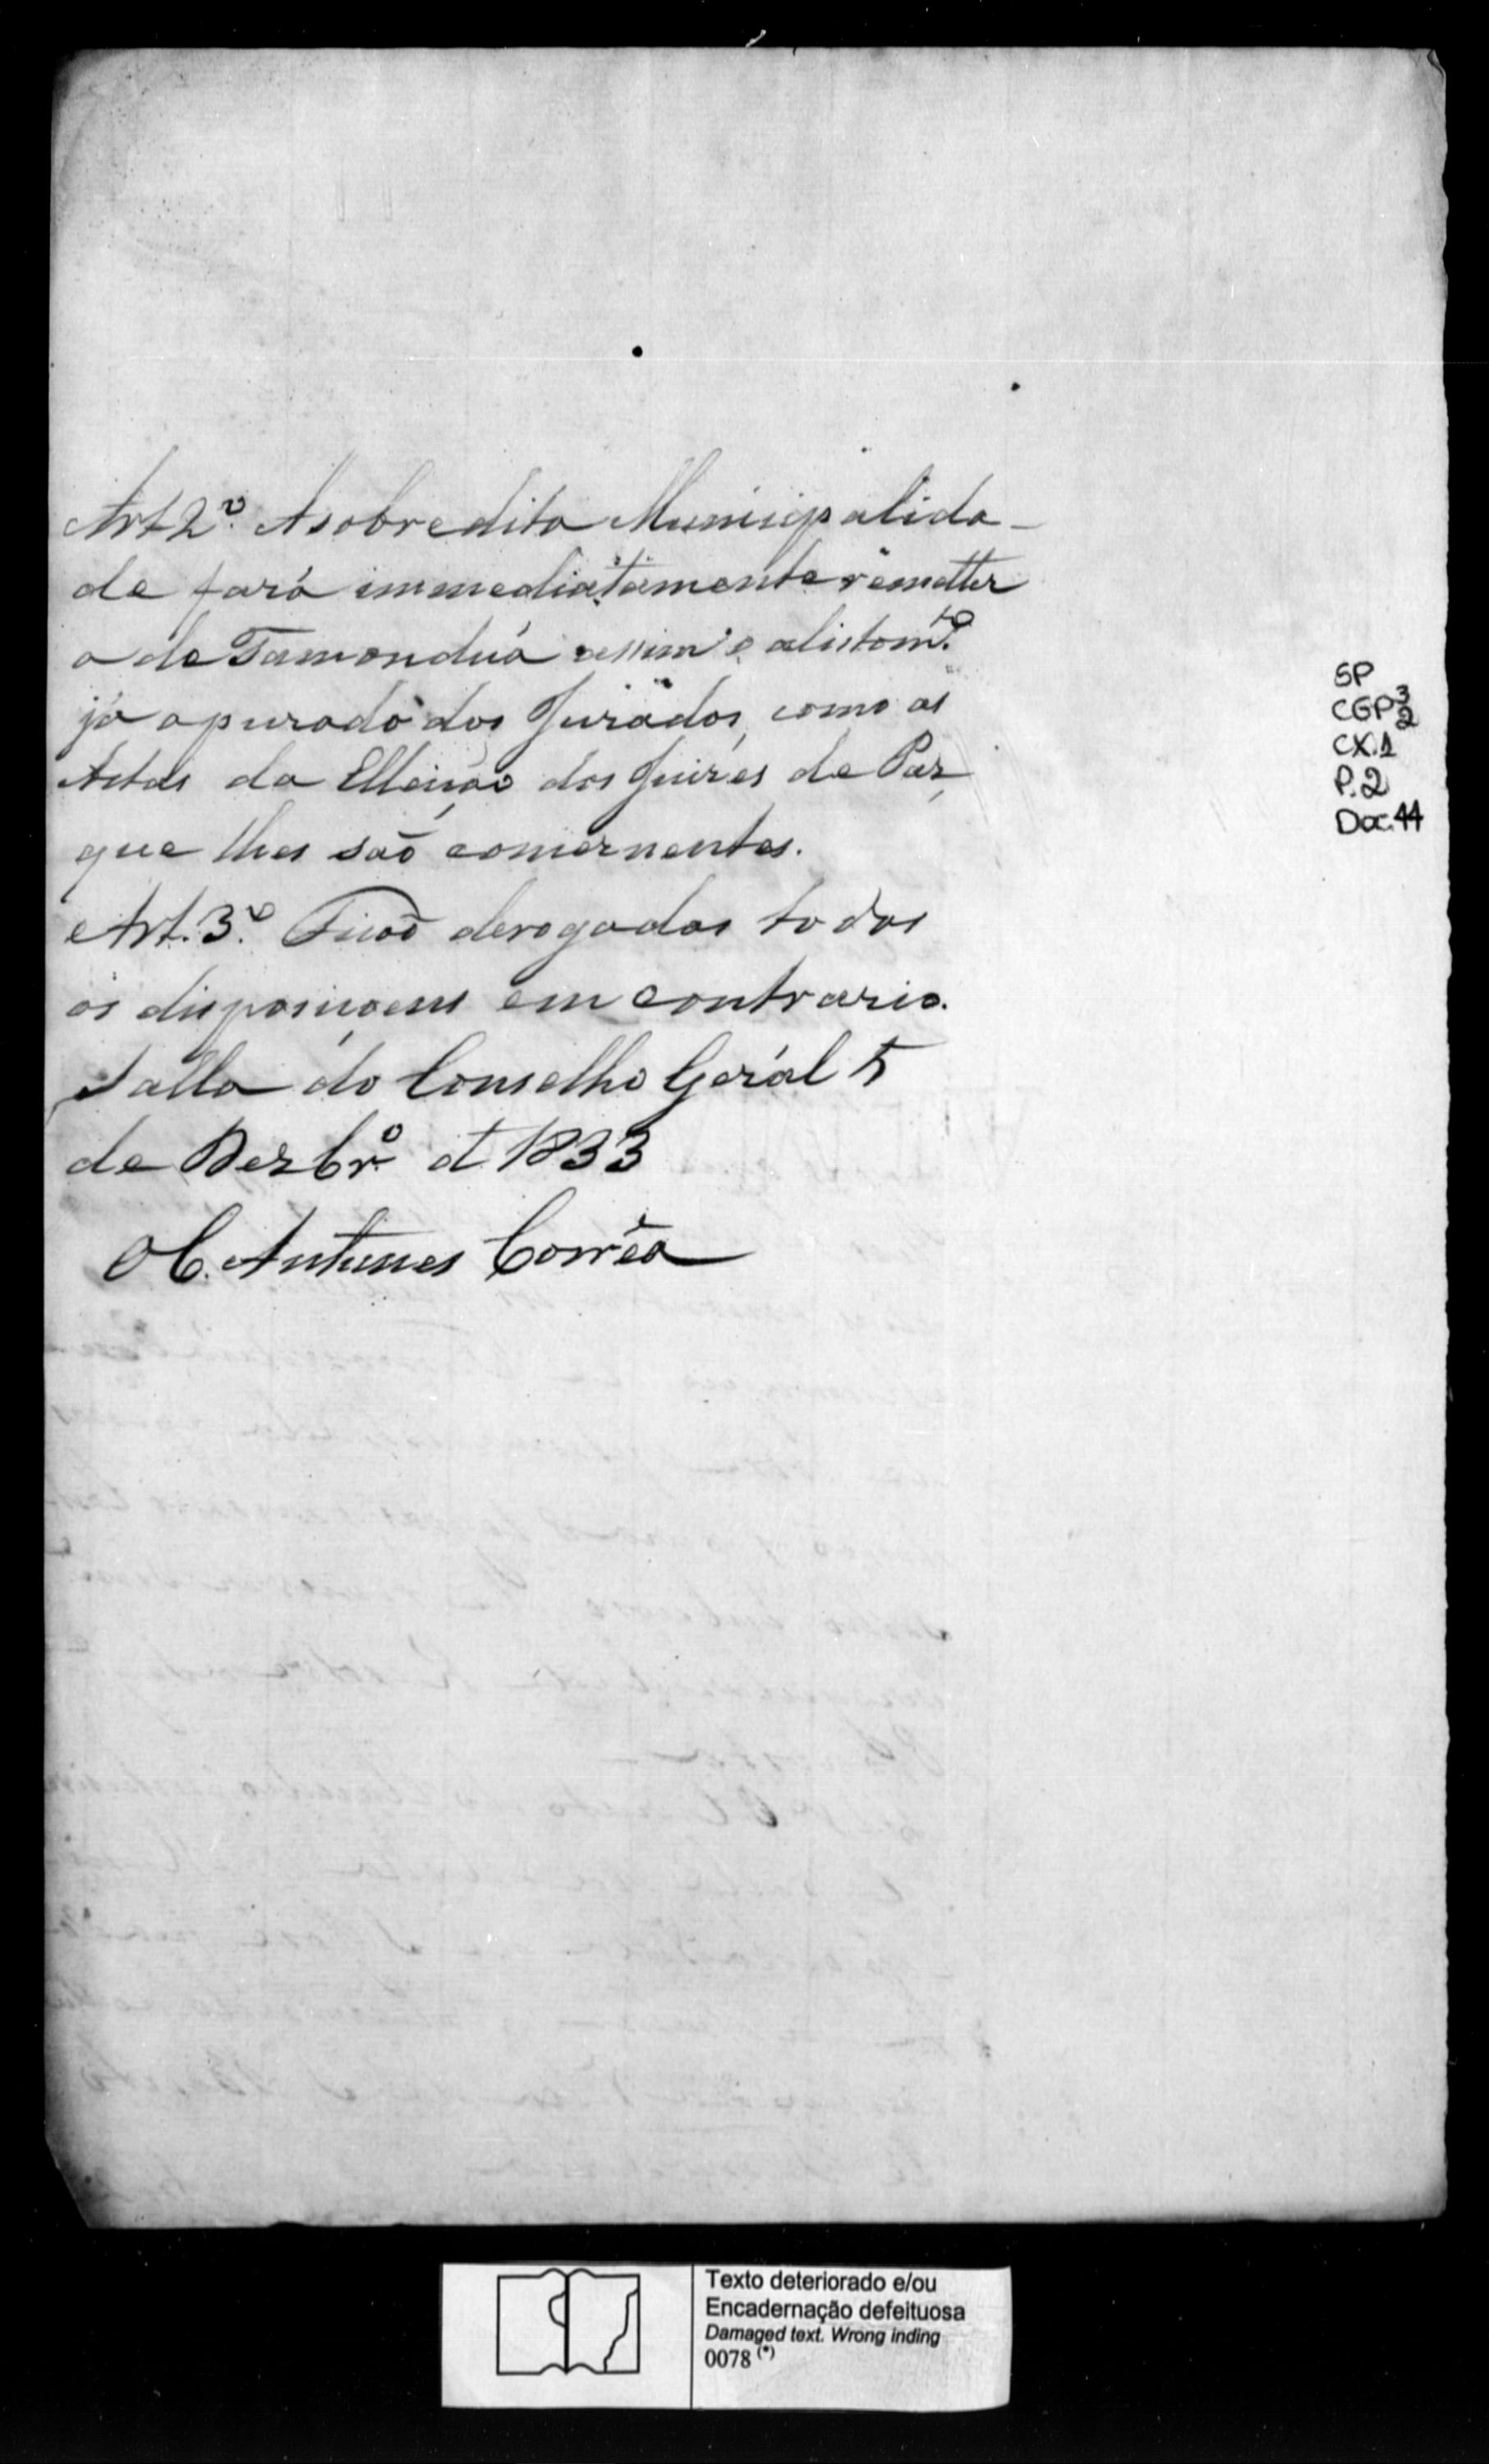 Art. 2º. A sobredita Municipalida-
de fará immediatamente remetter
a de Tamanduá assim o alistam.to
já apurado dos Jurados, como as
Actas da Elleição dos Juizes de Paz,
que lhes saõ concernentes.
Art. 3º. Ficaõ derogadas todas
as disposiçoens em contrario.
Salla do Conselho Geral 5
de Dezbrº d 1833
Antunes Corrêa
SP
CGP 3
2
CX.1
P.2
Doc. 44
Texto deteriorado e/ou
Encadernação defeituosa
Damaged text. Wrong inding
0078 (*)